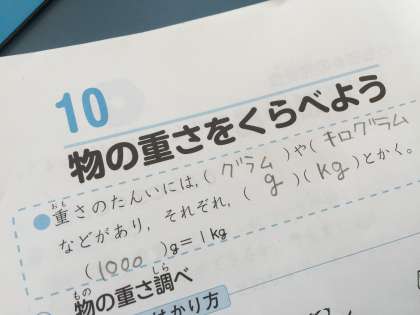 10
物の重さをくらべよう
重さのたんいには,(グラム)や(キログラム)
などがあり，それぞれ，(g)(kg)とかく。
(1000)g=1kg
物の重さ調べ
はかり方